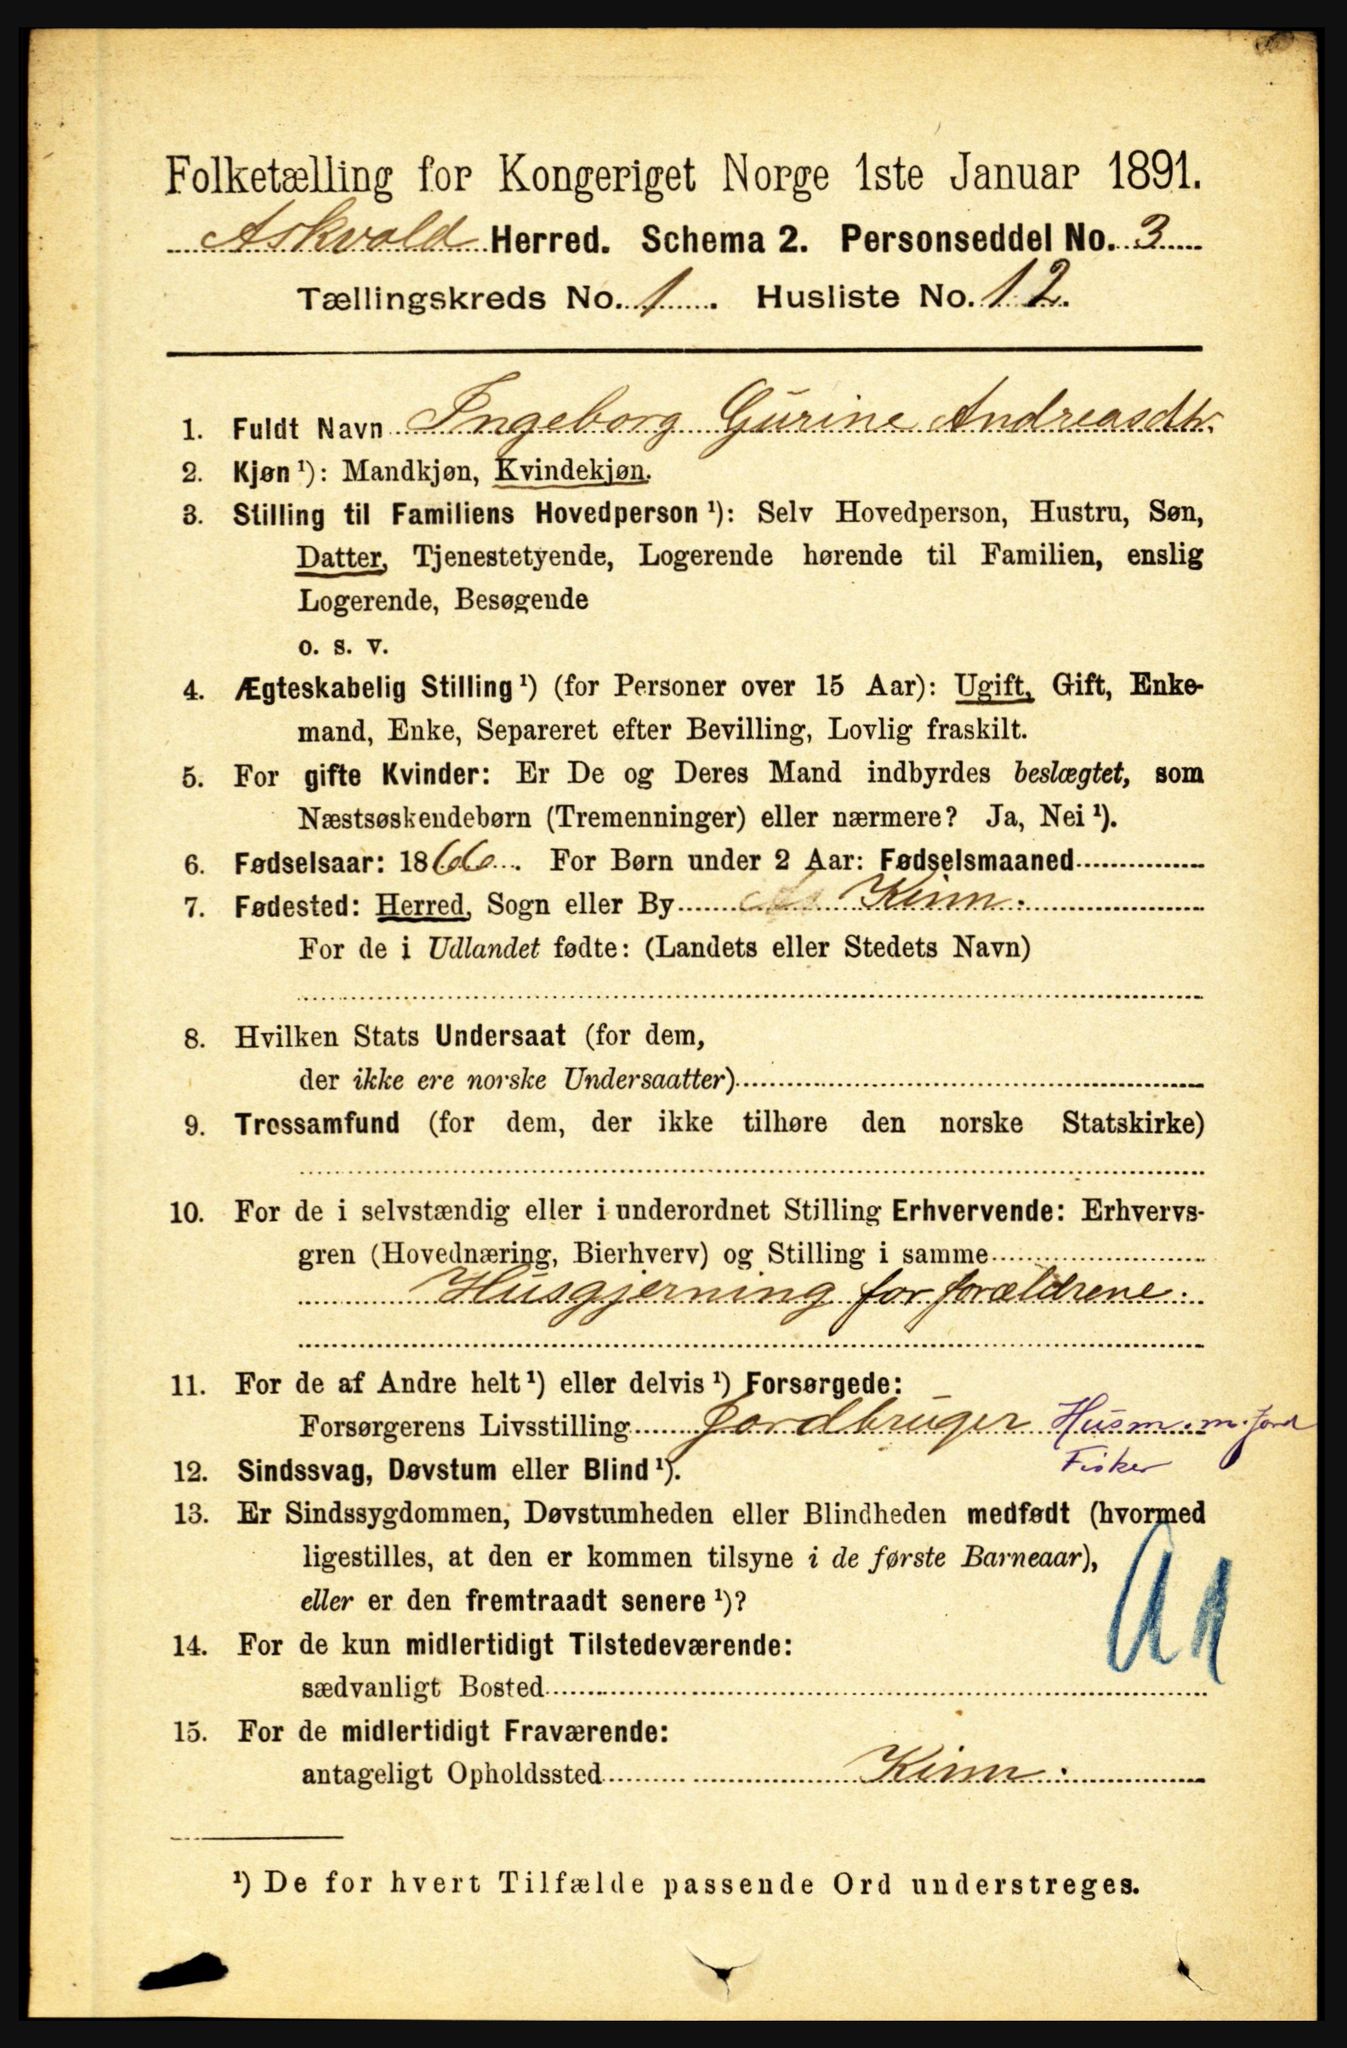 Folketælling for Kongeriget Norge 1ste Januar 1891.
Askvold Herred. Schema 2. Personseddel No. 3
Tællingskreds No. 1. Husliste No. 12.
1. Fuldt Navn Ingeborg Gurine Andreasdtr.
2. Kjøn ¹): Mandkjøn, Kvindekjøn.
3. Stilling til Familiens Hovedperson ¹): Selv Hovedperson, Hustru, Søn,
Datter, Tjenestetyende, Logerende hørende til Familien, enslig
Logerende, Besøgende
o. s. v.
4. Ægteskabelig Stilling ¹) (for Personer over 15 Aar): Ugift, Gift, Enke-
mand, Enke, Separeret efter Bevilling, Lovlig fraskilt.
5. For gifte Kvinder: Er De og Deres Mand indbyrdes beslægtet, som
Næstsøskendebørn (Tremenninger) eller nærmere? Ja, Nei ¹).
6. Fødselsaar: 1866. For Børn under 2 Aar: Fødselsmaaned
7. Fødested: Herred, Sogn eller By Kinn.
For de i Udlandet fødte: (Landets eller Stedets Navn)
8. Hvilken Stats Undersaat (for dem,
der ikke ere norske Undersaatter)
9. Trossamfund (for dem, der ikke tilhøre den norske Statskirke)
10. For de i selvstændig eller i underordnet Stilling Erhvervende: Erhvervs-
gren (Hovednæring, Bierhverv) og Stilling i samme
Husgjerning for forældrene.
11. For de af Andre helt ¹) eller delvis ¹) Forsørgede:
Forsørgerens Livsstilling Jordbruger Husm. m. jord
Fisker
12. Sindssvag, Døvstum eller Blind ¹).
13. Er Sindssygdommen, Døvstumheden eller Blindheden medfødt (hvormed
ligestilles, at den er kommen tilsyne i de første Barneaar),
eller er den fremtraadt senere ¹)?
14. For de kun midlertidigt Tilstedeværende:
sædvanligt Bosted
15. For de midlertidigt Fraværende:
antageligt Opholdssted Kinn.
¹) De for hvert Tilfælde passende Ord understreges.